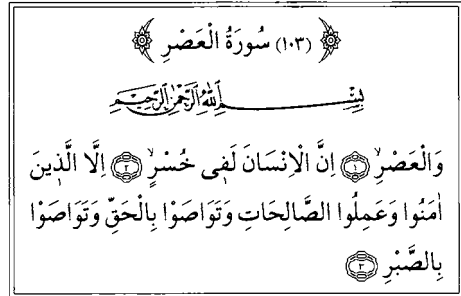 (١٠٣) سُورَةُ الْعَصْرِ
بِسْمِ اللّٰهِ الرَّحْمٰنِ الرَّحِيمِ
وَالْعَصْرِۙ ﴿١﴾ اِنَّ الْاِنْسَانَ لَف۪ى خُسْرٍۙ ﴿٢﴾ اِلَّا الَّذ۪ينَ
اٰمَنُوا وَعَمِلُوا الصَّالِحَاتِ وَتَوَاصَوْا بِالْحَقِّ وَتَوَاصَوْا
بِالصَّبْرِ ﴿٣﴾